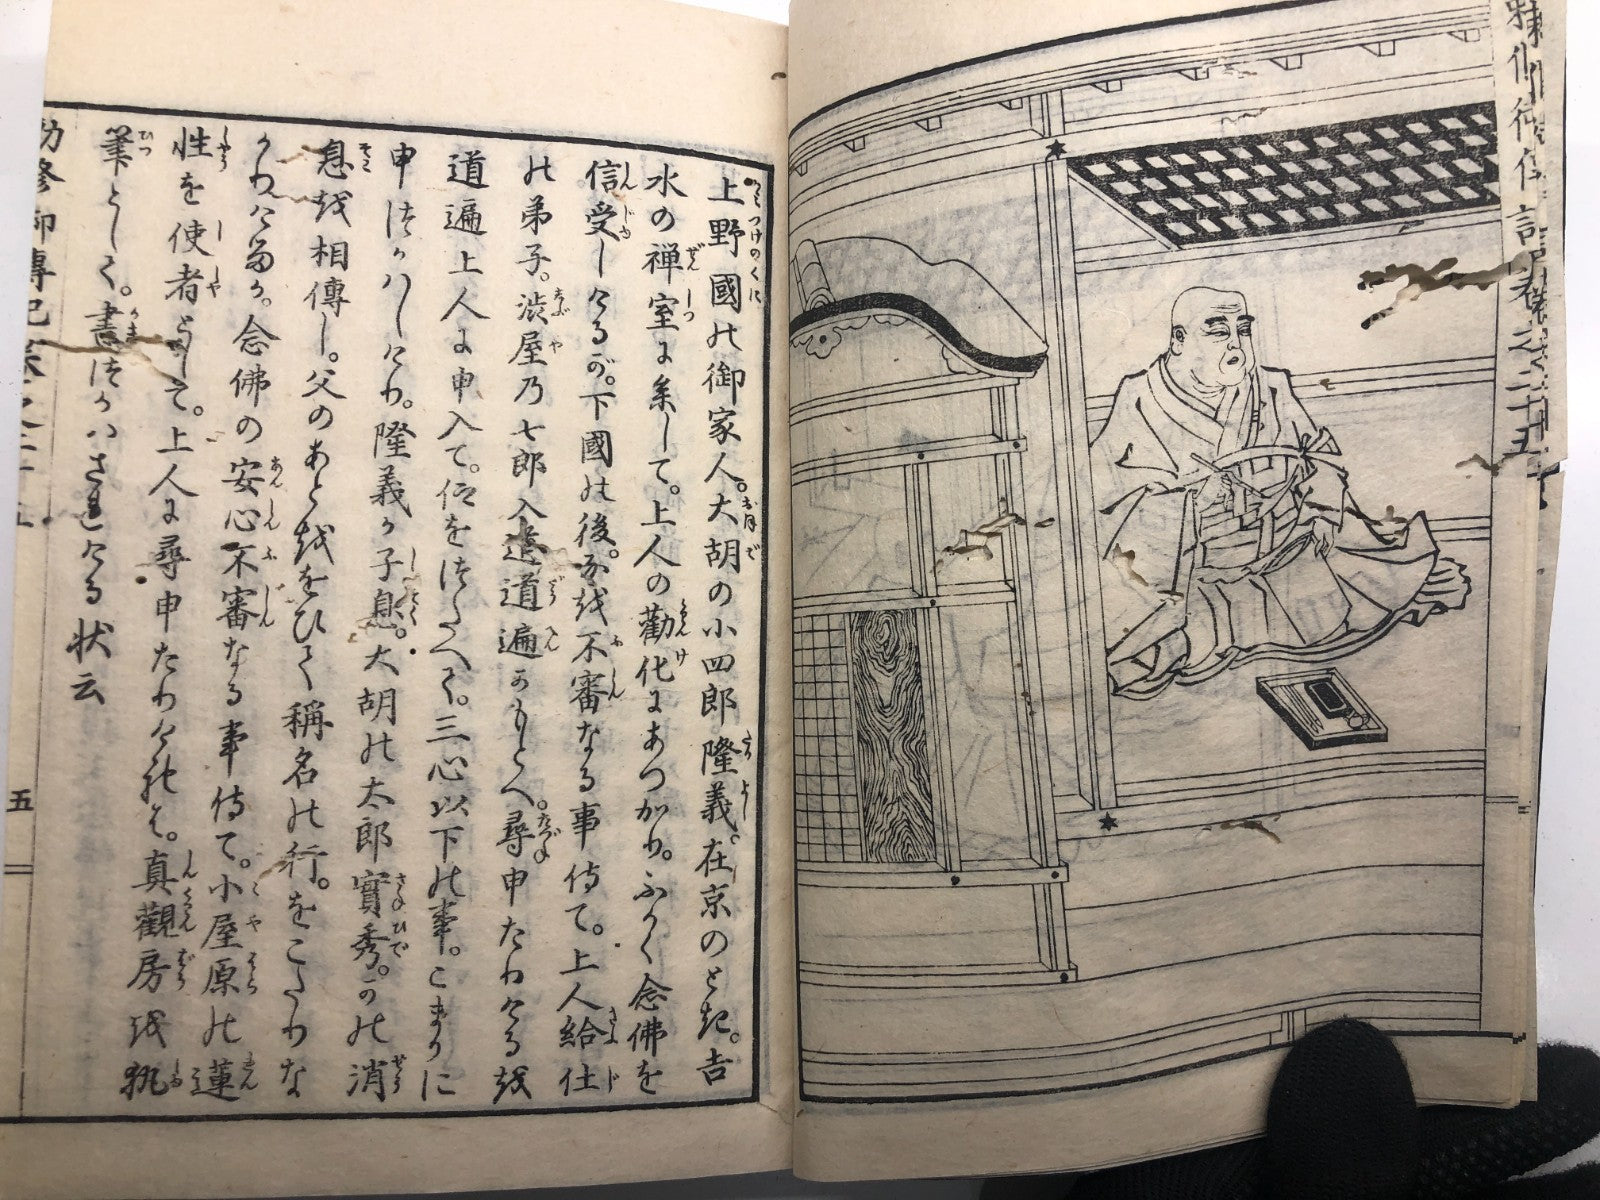 上野國の御家人。大胡の小四郎隆義。在京のとき。吉
水の禅室に参して。上人の勸化にあつかり。ふかく念佛を
信受しけるが。下國の後。なを不審なる事侍て。上人給仕
の弟子。渋屋乃七郎入道道遍かもとへ。尋申たりけるを
道遍上人に申入て。仰をつたへて。三心以下の事。こまかに
申つかハしけり。隆義か子息。大胡の太郎實秀。かの消
息を相傳し。父のあとををひて稱名の行。をこたりな
かりけるか。念佛の安心不審なる事侍て。小屋原の蓮
性を使者として。上人に尋申たりけれは。真觀房を執
筆として。書つかハされける状云
五